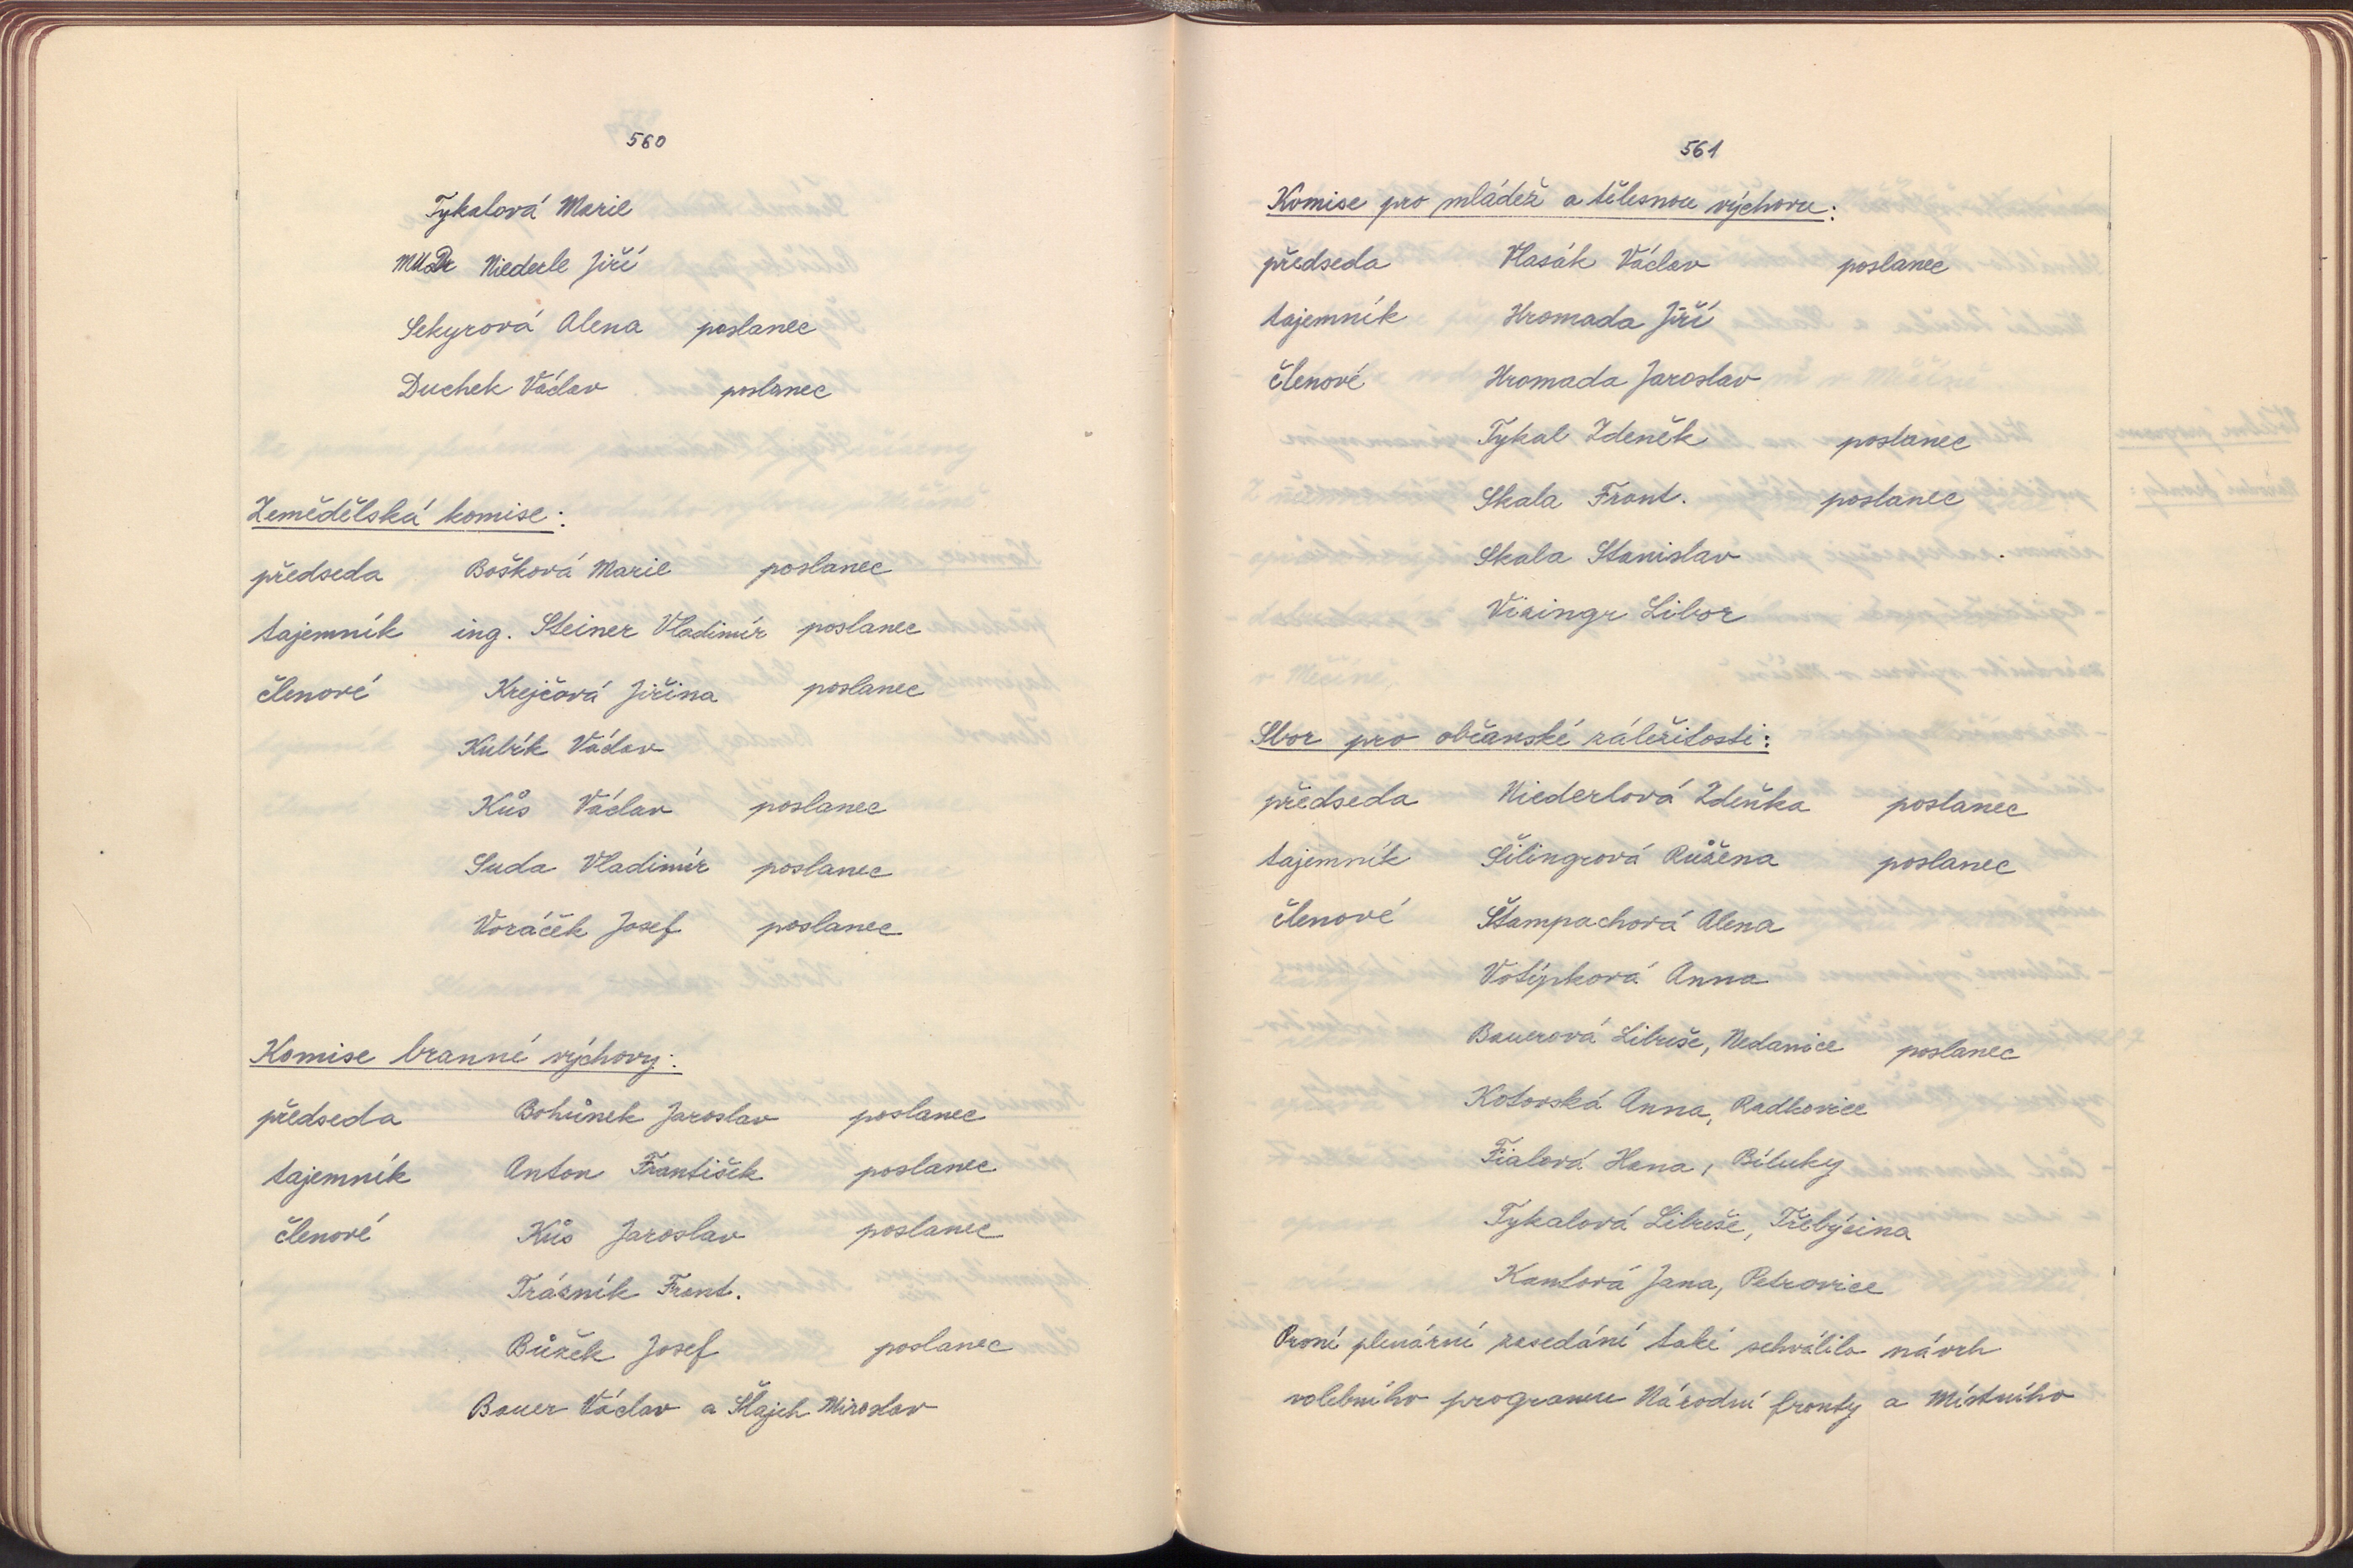 560
Tykalová Marie
MUDr Niederle Jiří
Sekyrová Alena poslanec
Duchek Václav poslanec
Zemědělská komise:
předseda Bošková Marie poslanec
tajemník ing. Steiner Vladimír poslanec
členové Krejčová Jiřina poslanec
Kubík Václav
Kůs Václav poslanec
Suda Vladimír poslanec
Voráček Josef poslanec
Komise branné výchovy:
předseda Bohůnek Jaroslav poslanec
tajemník Anton František poslanec
členové Kůs Jaroslav poslanec
Trázník Frant.
Bůžek Josef poslanec
Bauer Václav a Šlajch Miroslav
561
Komise pro mládež a tělesnou výchovu:
předseda Vlasák Václav poslanec
tajemník Hromada Jiří
členové Hromada Jaroslav
Tykal Zdeněk poslanec
Skala Frant. poslanec
Skala Stanislav
Vizingr Libor
Sbor pro občanské záležitosti:
předseda Niederlová Zdeňka poslanec
tajemník Šilingrová Růžena poslanec
členové Štampachová Alena
Votýpková Anna
Bauerová Libuše, Nedanice poslanec
Kotorská Anna, Radkovice
Fialová Hana, Bíluky
Tykalová Libuše, Třebýcina
Kantová Jana, Petrovice
První plenární zasedání také schválilo návrh
volebního programu Národní fronty a Místního